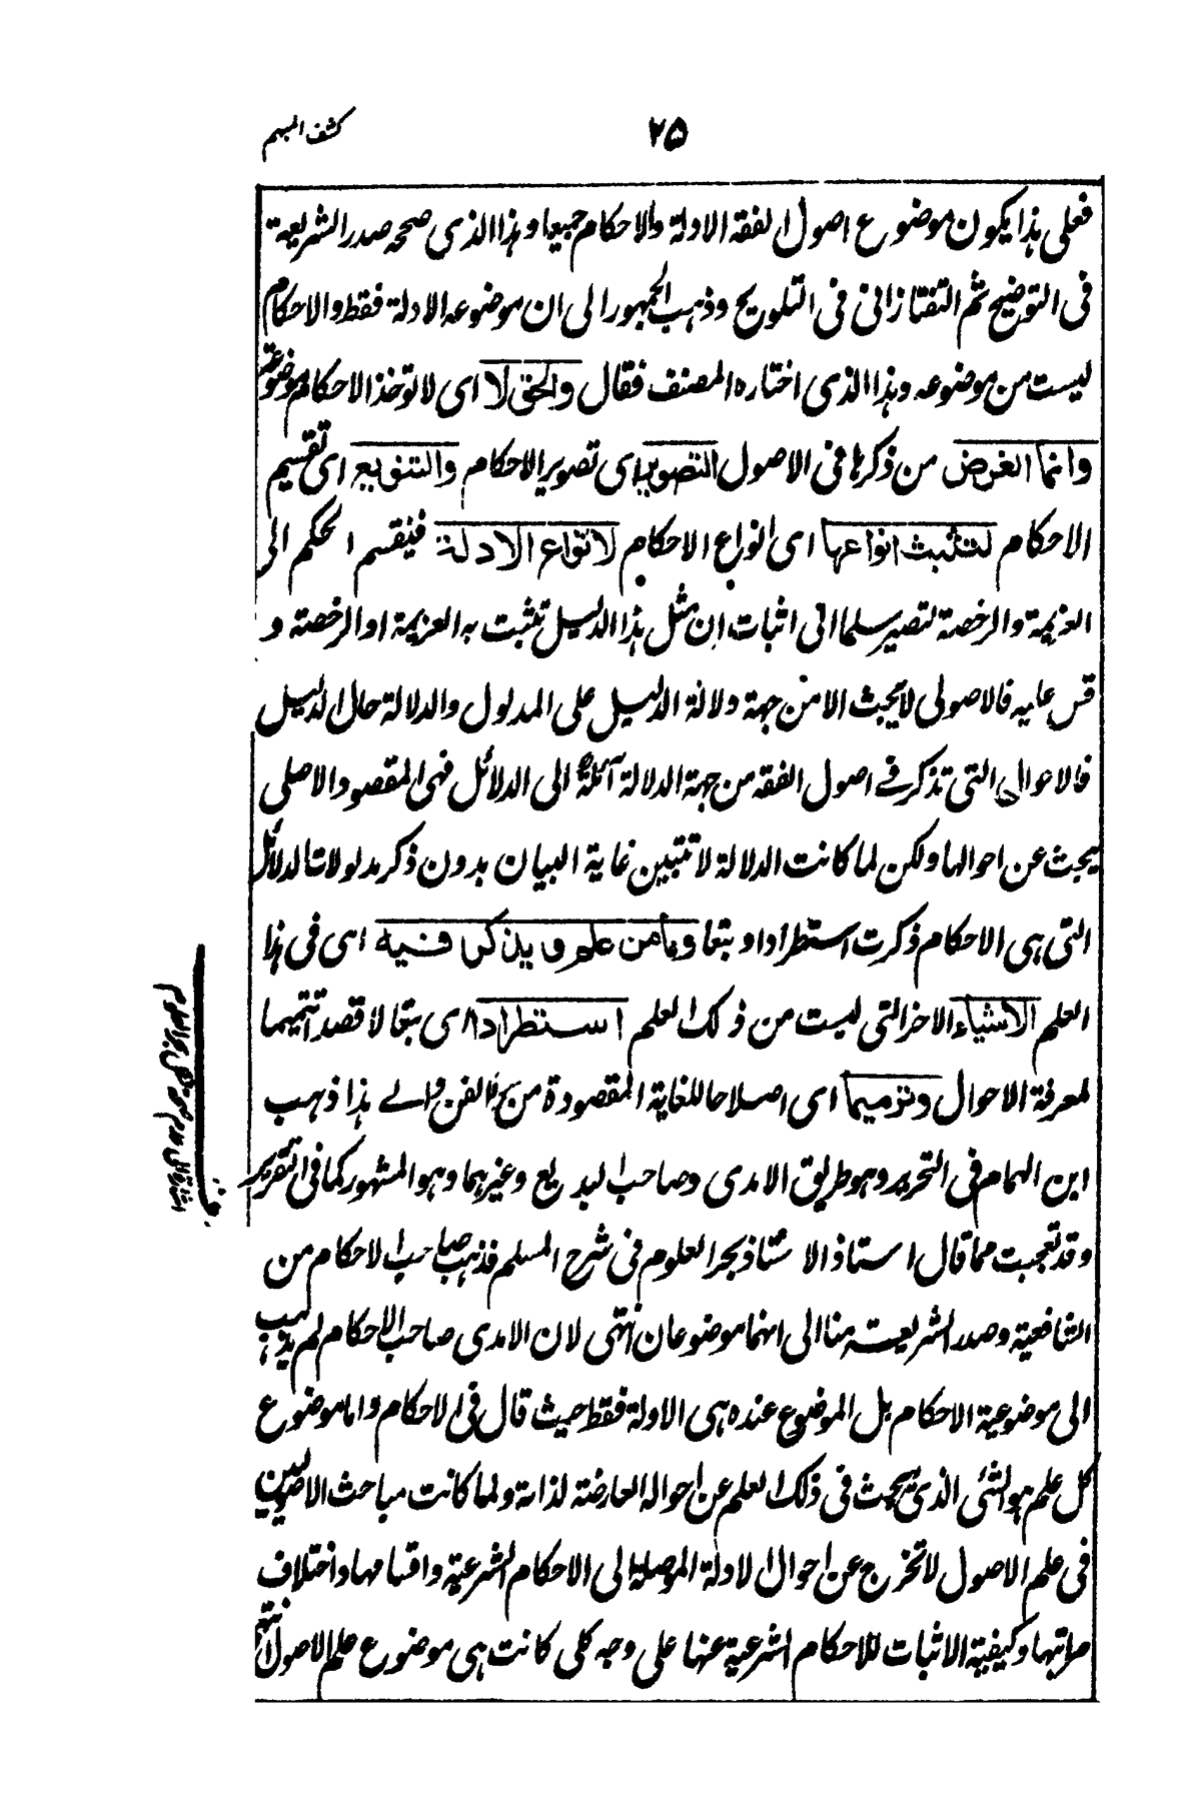 ۲۵
كشف المبهم
فعلى هذا يكون موضوع اصول الفقه الادلة والاحكام جميعا وهذا الذى صححه صدر الشريعة
فى التوضيح ثم التفتازانى فى التلويح وذهب الجمهور الى ان موضوعه الادلة فقط والاحكام
ليست من موضوعه وهذا الذى اختاره المصنف فقال والحق لا اى لا توخذ الاحكام موضوعة
وانما الغرض من ذكرها فى الاصول التصوير اى تصوير الاحكام والتنويع اى تقسيم
الاحكام لتثبت انواعها اى انواع الاحكام لانواع الادلة فينقسم الحكم الى
العزيمة والرخصة لتصير سلما الى اثبات ان مثل هذا الدليل تثبت به العزيمة او الرخصة و
قس عليه فالاصولى لا يبحث الا من جهة دلالة الدليل على المدلول والدلالة حال الدليل
فالاحوال التى تذكر فے اصول الفقه من جهة الدلالة آئلة الى الدلائل فهى المقصود الاصلى
يبحث عن احوالها ولكن لما كانت الدلالة لا تتبين غاية البيان بدون ذكر مدلولات الدلائل
التى هى الاحكام ذكرت استطرادا وتبعا وما من علم الا ويذكر فيه اى فى هذا
العلم الاشياء الاخر التى ليست من ذلك العلم استطرادا اى تبعا لا قصدا تتميما
لمعرفة الاحوال وترميما اى اصلاحا للغاية المقصودة من هذا الفن والے هذا ذهب
ابن الهمام فى التحرير وهو طريق الامدى وصاحب البديع وغيرهما وهو المشهور كما فى التقرير
وقد تعجبت مما قال استاذ الاستاذ بحر العلوم فى شرح المسلم فذهب صاحب الاحكام من
الشافعية وصدر الشريعة منا الى انهما موضوعان انتهى لان الامدى صاحب الاحكام لم يذهب
الى موضوعية الاحكام بل الموضوع عنده هى الادلة فقط حيث قال فى الاحكام واما موضوع
كل علم هو الشئ الذى يبحث فى ذلك العلم عن احواله العارضة لذاته ولما كانت مباحث الاصوليين
فى علم الاصول لا تخرج عن احوال الادلة الموصلة الى الاحكام الشرعية واقسامها واختلاف
مراتبها وكيفية الاثبات للاحكام الشرعية عنها على وجه كلى كانت هى موضوع علم الاصول انتهى